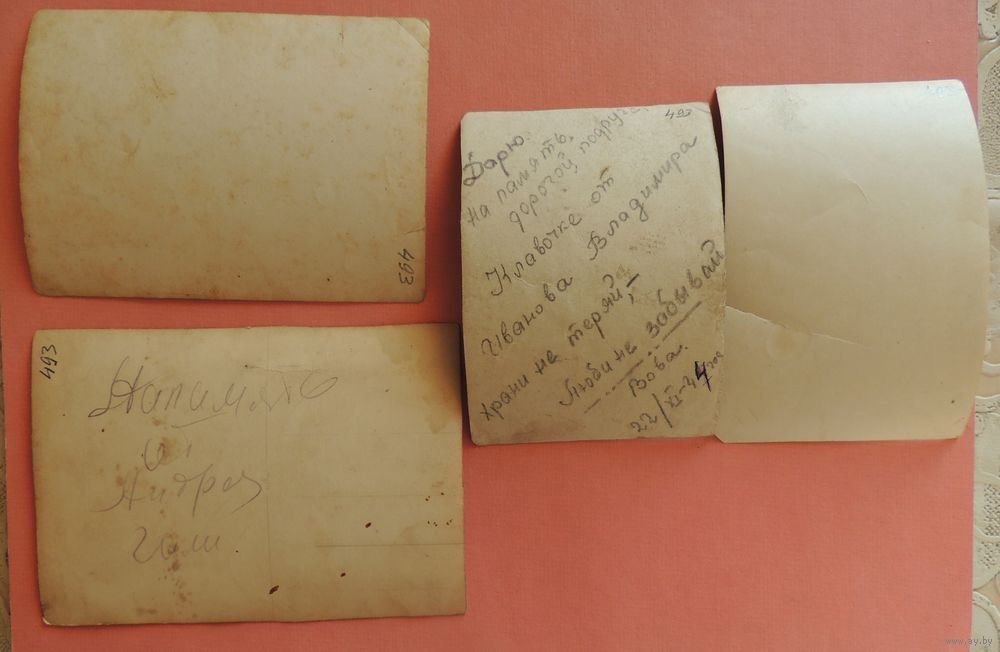 493
493
Напамять
от
Андрея
Гали
493
Дарю
на память,
дорогой подруге
Клавочке от
Иванова Владимира
храни не теряй,
Люби не забывай
Вова.
22/XI-44 г.
493
www.ay.by